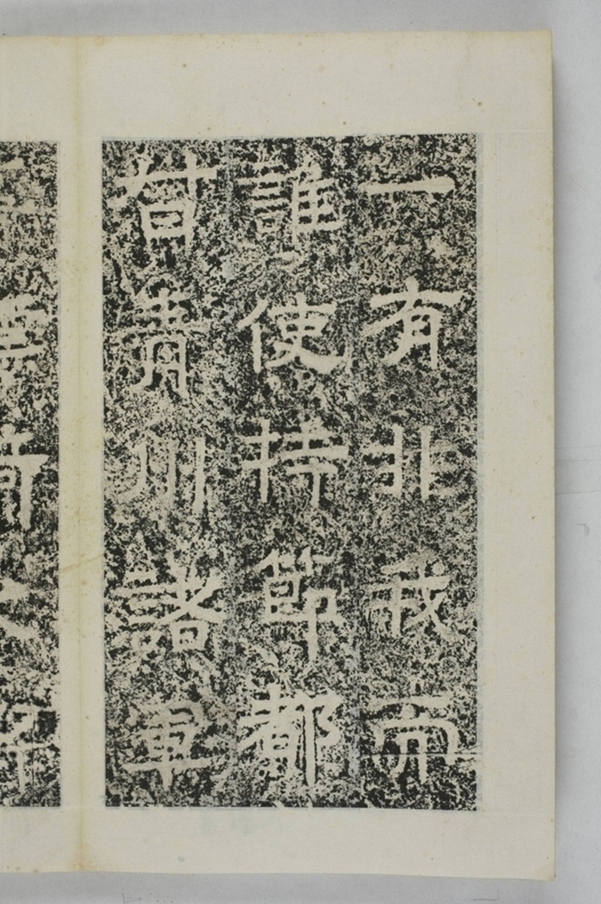 一有非我而
誰使持節都
督青州諸軍